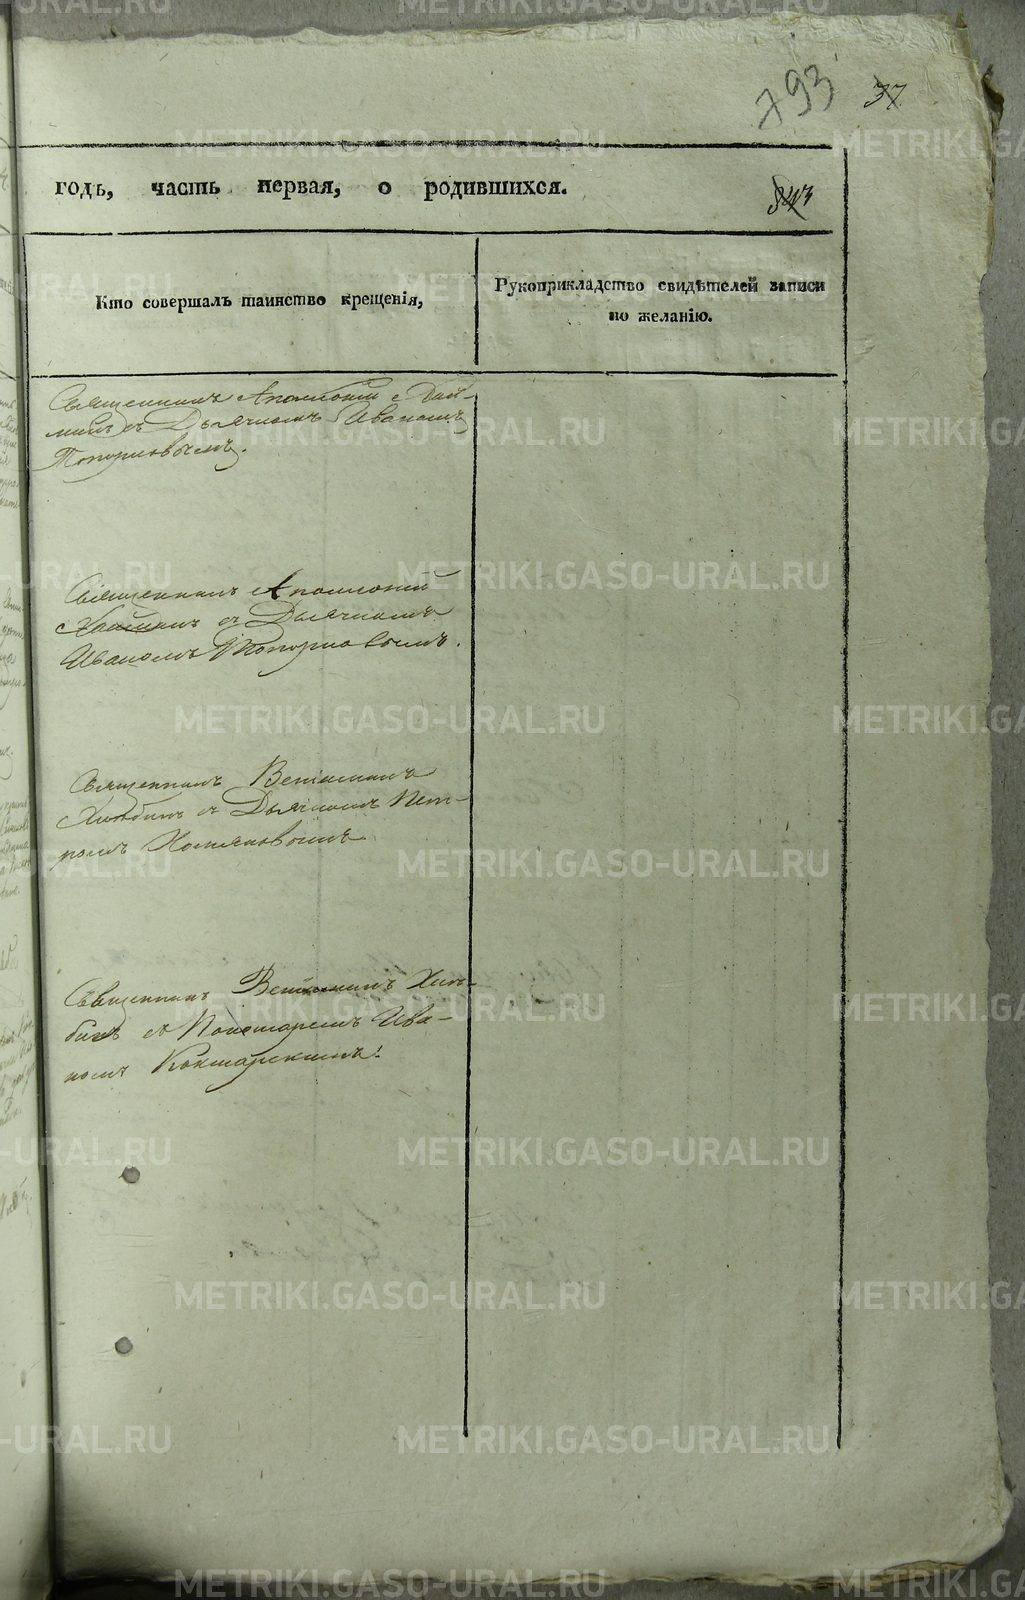 793
37
годъ, часть первая, о родившихся.
843
Кто совершалъ таинство крещенія,
Рукоприкладство свидѣтелей записи
по желанію.
Священникъ
съ Дьячкомъ Иваномъ
Топорковымъ.
Священникъ Аполлоній
съ Дьячкомъ
Иваномъ Топорковымъ.
Священникъ Веніаминъ
Хлѣбинъ съ Дьячкомъ Пет-
ромъ Хомяковымъ
Священникъ Веніаминъ Хлѣ-
бинъ съ Пономаремъ Ива-
номъ Кокшарскимъ.
METRIKI.GASO-URAL.RU